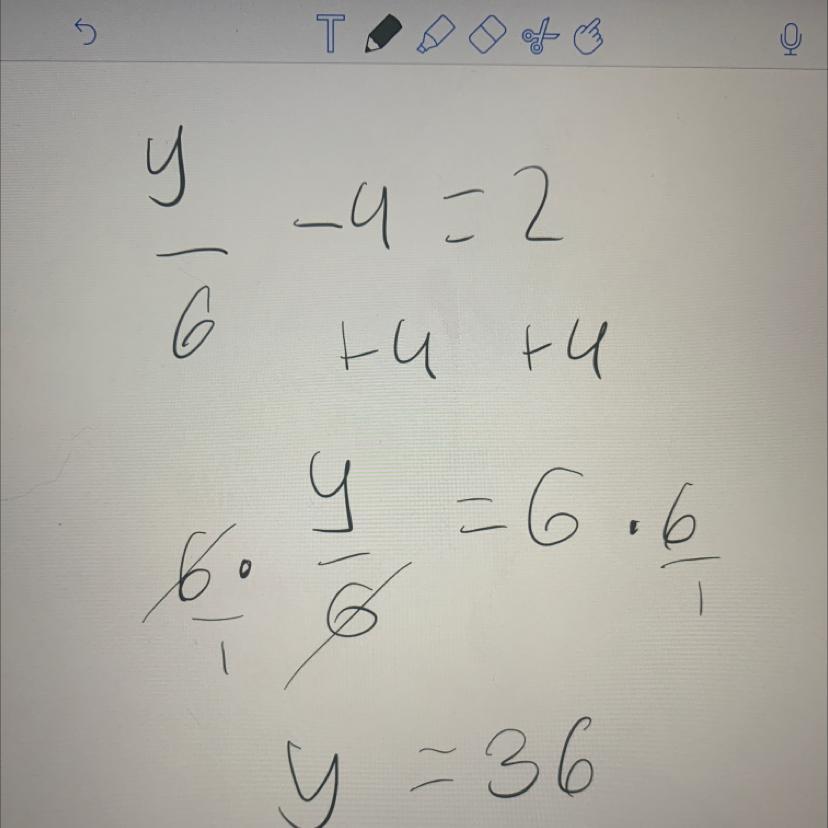 T
y/6 -4 = 2
+4 +4
6/1 · y/6 = 6 · 6/1
y = 36